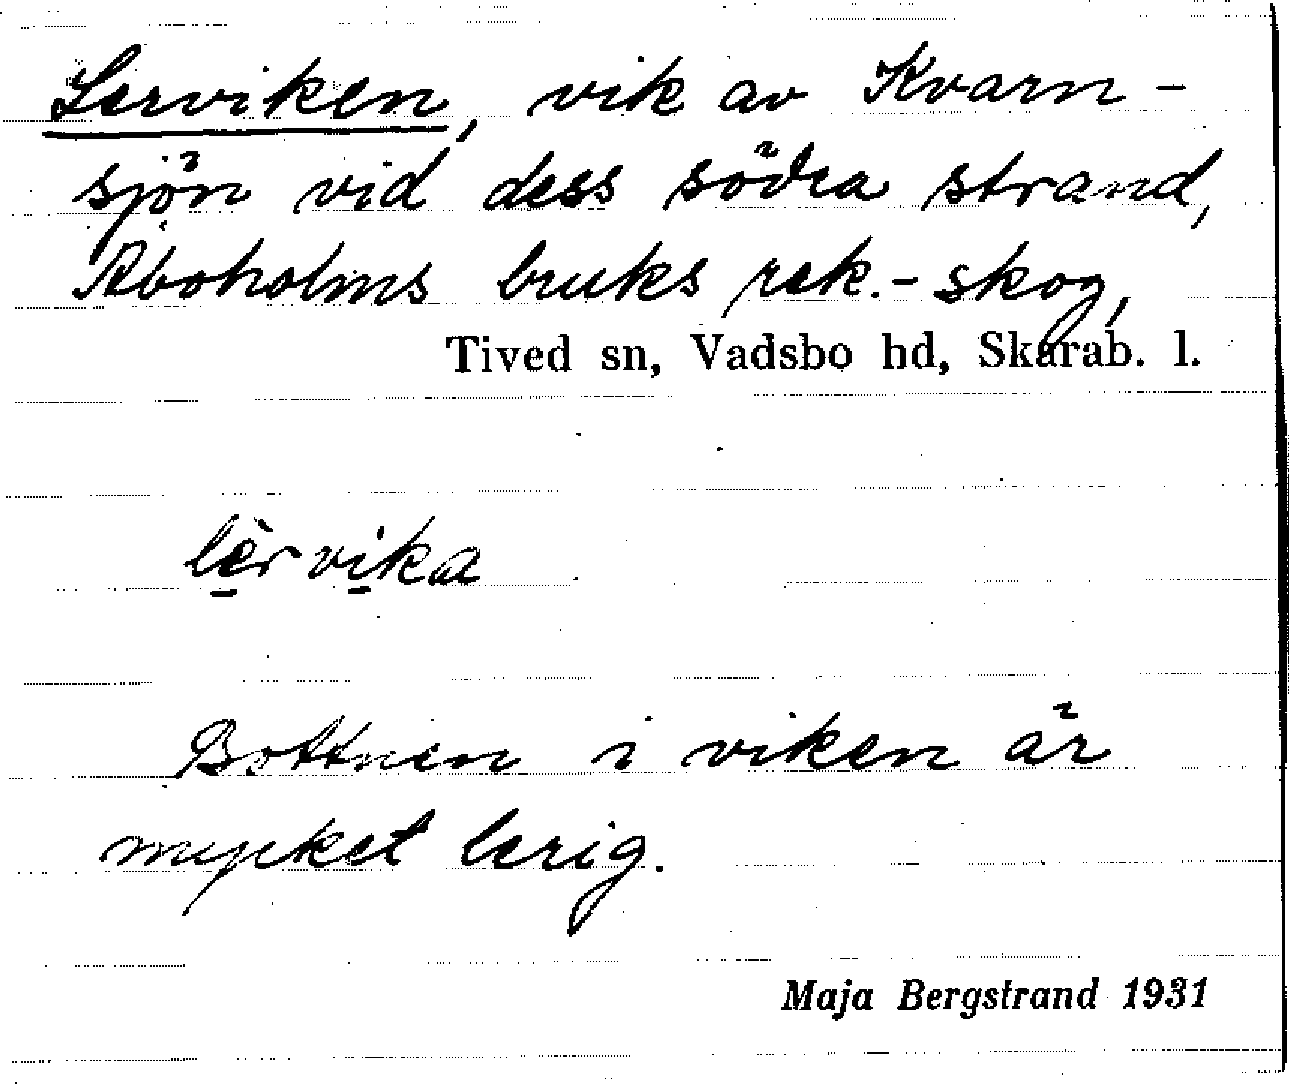 Lerviken, vik av Kvarn-
sjön vid dess södra strand,
Åboholms bruks rek.-skog,
Tived sn, Vadsbo hd, Skarab. l.
lèrvika
Bottnen i viken är
mycket lerig.
Maja Bergstrand 1931